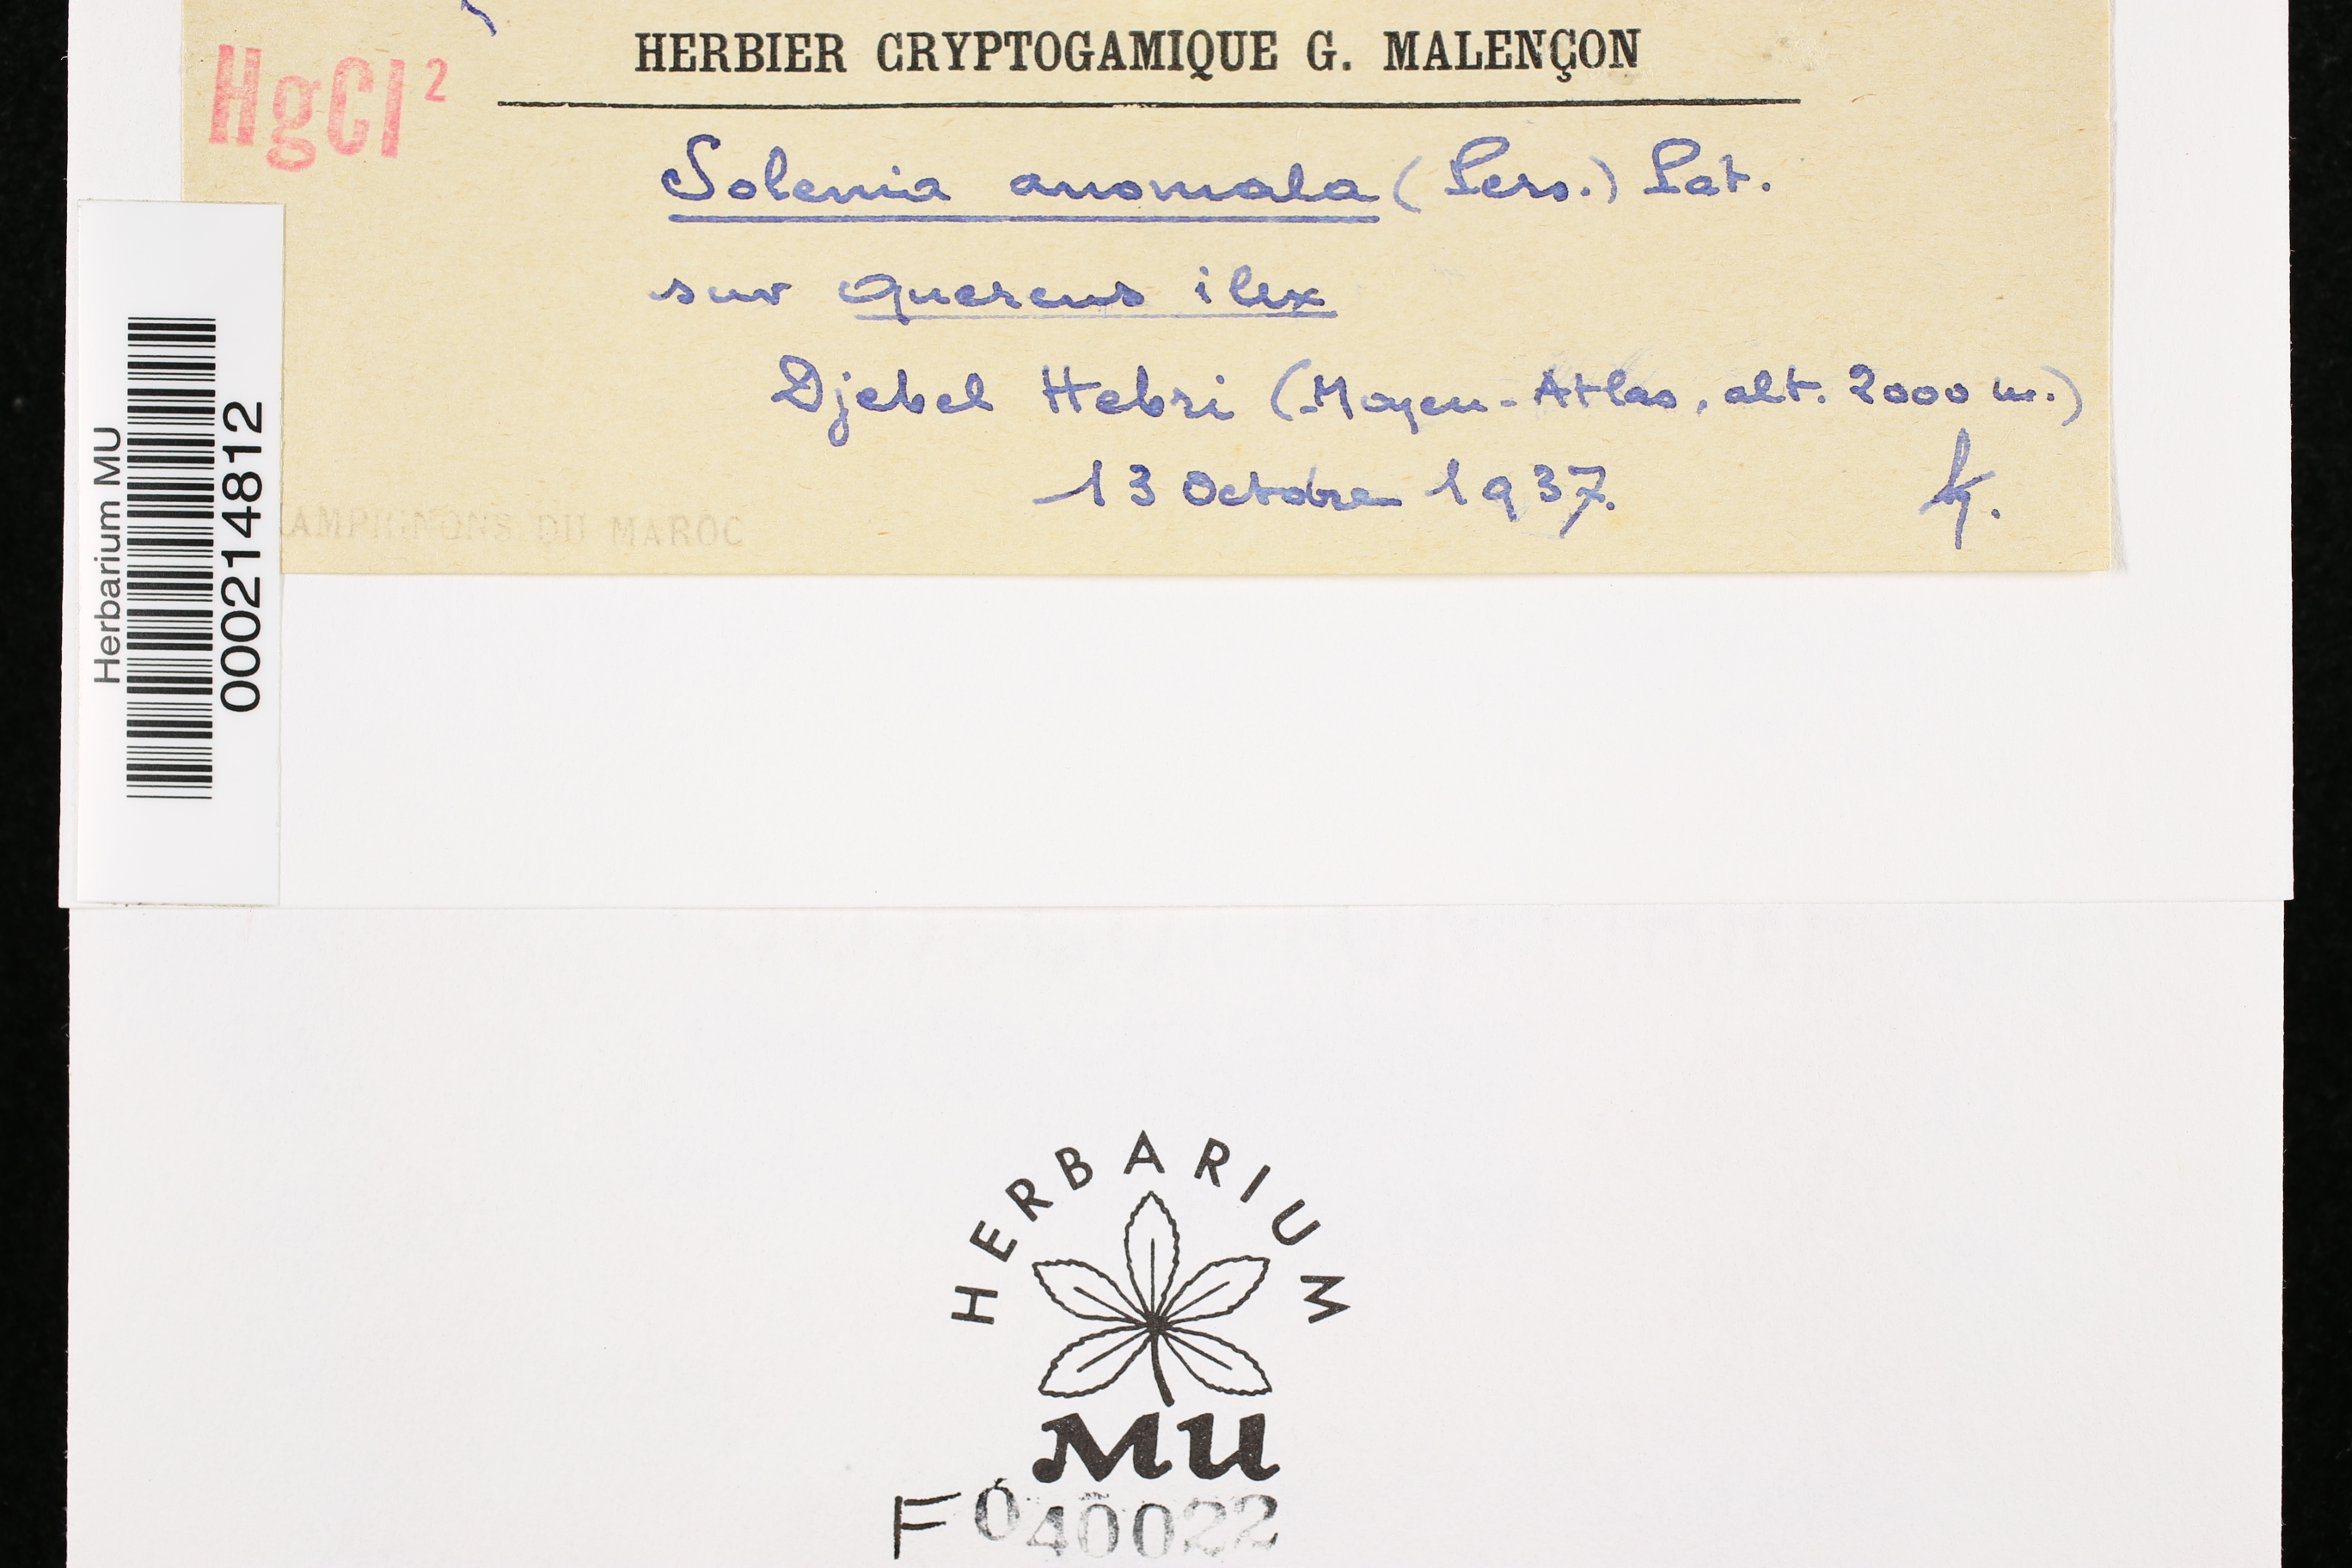 HERBIER CRYPTOGAMIQUE G. MALENÇON
HgCl²
Solenia anomala (Pers.) Pat.
sur Quercus ilex
Djebel Hebri (Moyen-Atlas, alt. 2000 m.)
13 Octobre 1937.
AMPIGNONS DU MAROC
Herbarium MU
000214812
HERBARIUM
MU
F 040022